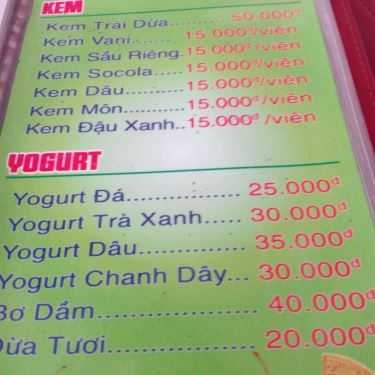 KEM
Kem Trái Dừa........50.000đ
Kem Vani.......15.000đ/viên
Kem Sầu Riêng.15.000đ/viên
Kem Socola......15.000đ/viên
Kem Dâu..........15.000đ/viên
Kem Môn.........15.000đ/viên
Kem Đậu Xanh..15.000đ/viên
YOGURT
Yogurt Đá..............25.000đ
Yogurt Trà Xanh.....30.000đ
Yogurt Dâu............35.000đ
Yogurt Chanh Dây...30.000đ
Bơ Dầm................40.000đ
Dừa Tươi..............20.000đ